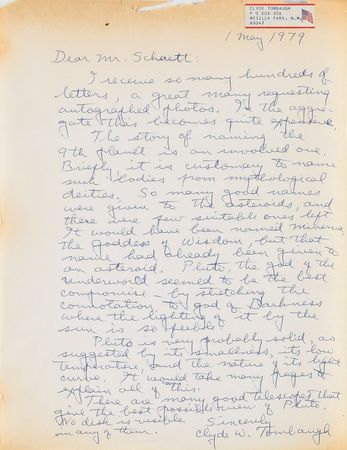 CLYDE TOMBAUGH
P O BOX 306
MESILLA PARK, N.M.
88047
1 May 1979
Dear Mr. Scherett:
I receive so many hundreds of
letters, a great many requesting
autographed photos. In the aggre-
gate this becomes quite expensive.
The story of naming the
9th planet is an involved one.
Briefly it is customary to name
such bodies from mythological
deities. So many good names
were given to the asteroids, and
there were few suitable ones left
It would have been named Minerva,
the goddess of Wisdom, but that
name had already been given to
an asteroid. Pluto, the god of the
underworld seemed to be the best
compromise - by stretching the
connotation to god of Darkness
where the lighting of it by the
sun is so feeble.
Pluto is very probably solid, as
suggested by its smallness, its low
temperature, and the nature of its light
curve. It would take many pages to
explain all of this.
There are many good telescopes that
give the best possible view of Pluto.
No disk is visible
in any of them.
Sincerely
Clyde W. Tombaugh